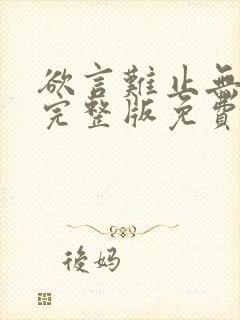 欲言難止無
完整版免費
後妈